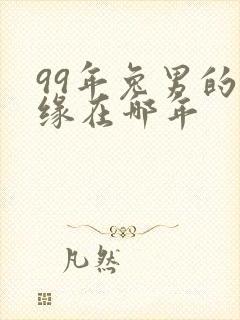 99年兔男的
缘在哪年
凡然